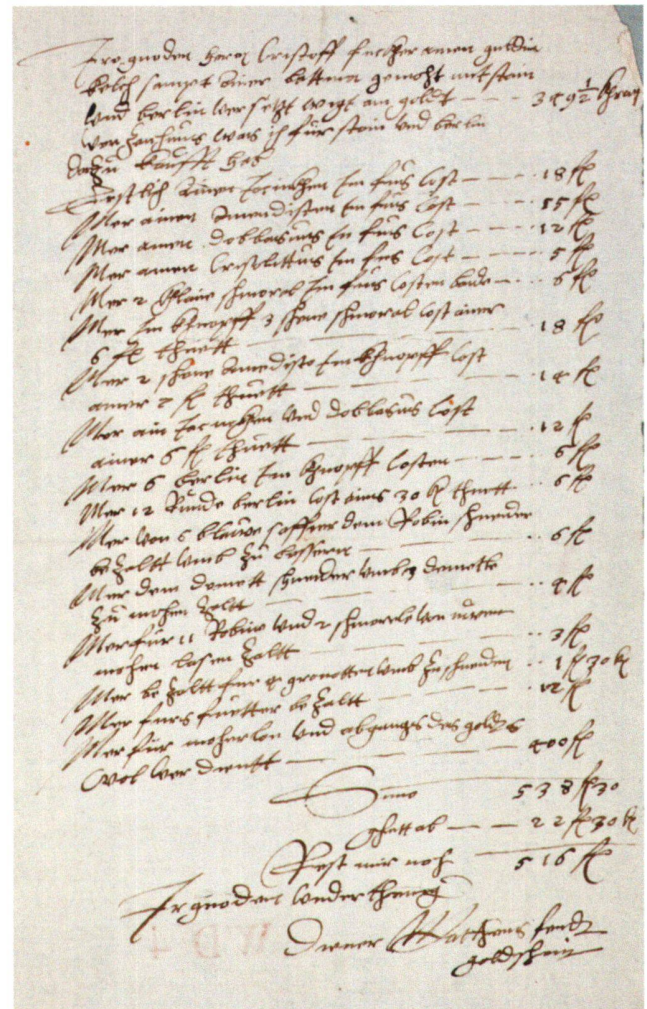 Ire gnaden herrn Cristoff fuckher ainen guldin
kelch sampt ainer kettenen gemacht mit stain
Und berlin versetzt wigt an goldt — — — 349 1/2 Chronen
was ich fur stain und berlin
darzu kaufft hab
Erstlich ainen Jecinthen Im fuos cost — — — 18 fl
Mer ainen Amedisten Im fuos cost — — — 55 fl
Mer ainen dobbasius Im fuos cost — — — 12 fl
Mer ainen Crisolittus Im fuos cost — — — 5 fl
Mer 2 khlaine schmaral Im fuos costen bede — — 6 fl
Mer Im khnopff 3 schene schmaral cost ainer
6 fl thuett — — — 18 fl
Mer 2 schene Amedisto Im khnopff cost
ainer 7 fl thuett — — — 14 fl
Mer ain Jecinckhen Und dobbasius cost
ainer 6 fl thuett — — — 12 fl
Mer 6 berlin Im khnopff costen — — — 6 fl
Mer 12 Runde berlin cost ains 30 kr thuett — 6 fl
Mer von 6 blawe saffier dem Robin schneider
bezaltt umb zu bessern — — — 6 fl
Mer dem demott schneider umb 3 demotte
zu machen zaltt — — — 4 fl
Mer fur 11 Robine Und 2 schmarele von
machen lasen zaltt — — — 3 fl
Mer bezaltt fur 9 gronotten umb zu schneiden — 1 fl 30 kr
Mer furs fuetter bezaltt — — — 12 fl
Mer fur macherlon Und abgangs des golds
wol verdientt — — — 400 fl
Suma 538 fl 30
ghett ab — — 22 fl 30 kr
Rest mir noch 516 fl
Ir gnaden Underthenig
Diener Matheus fendt
goldschmid